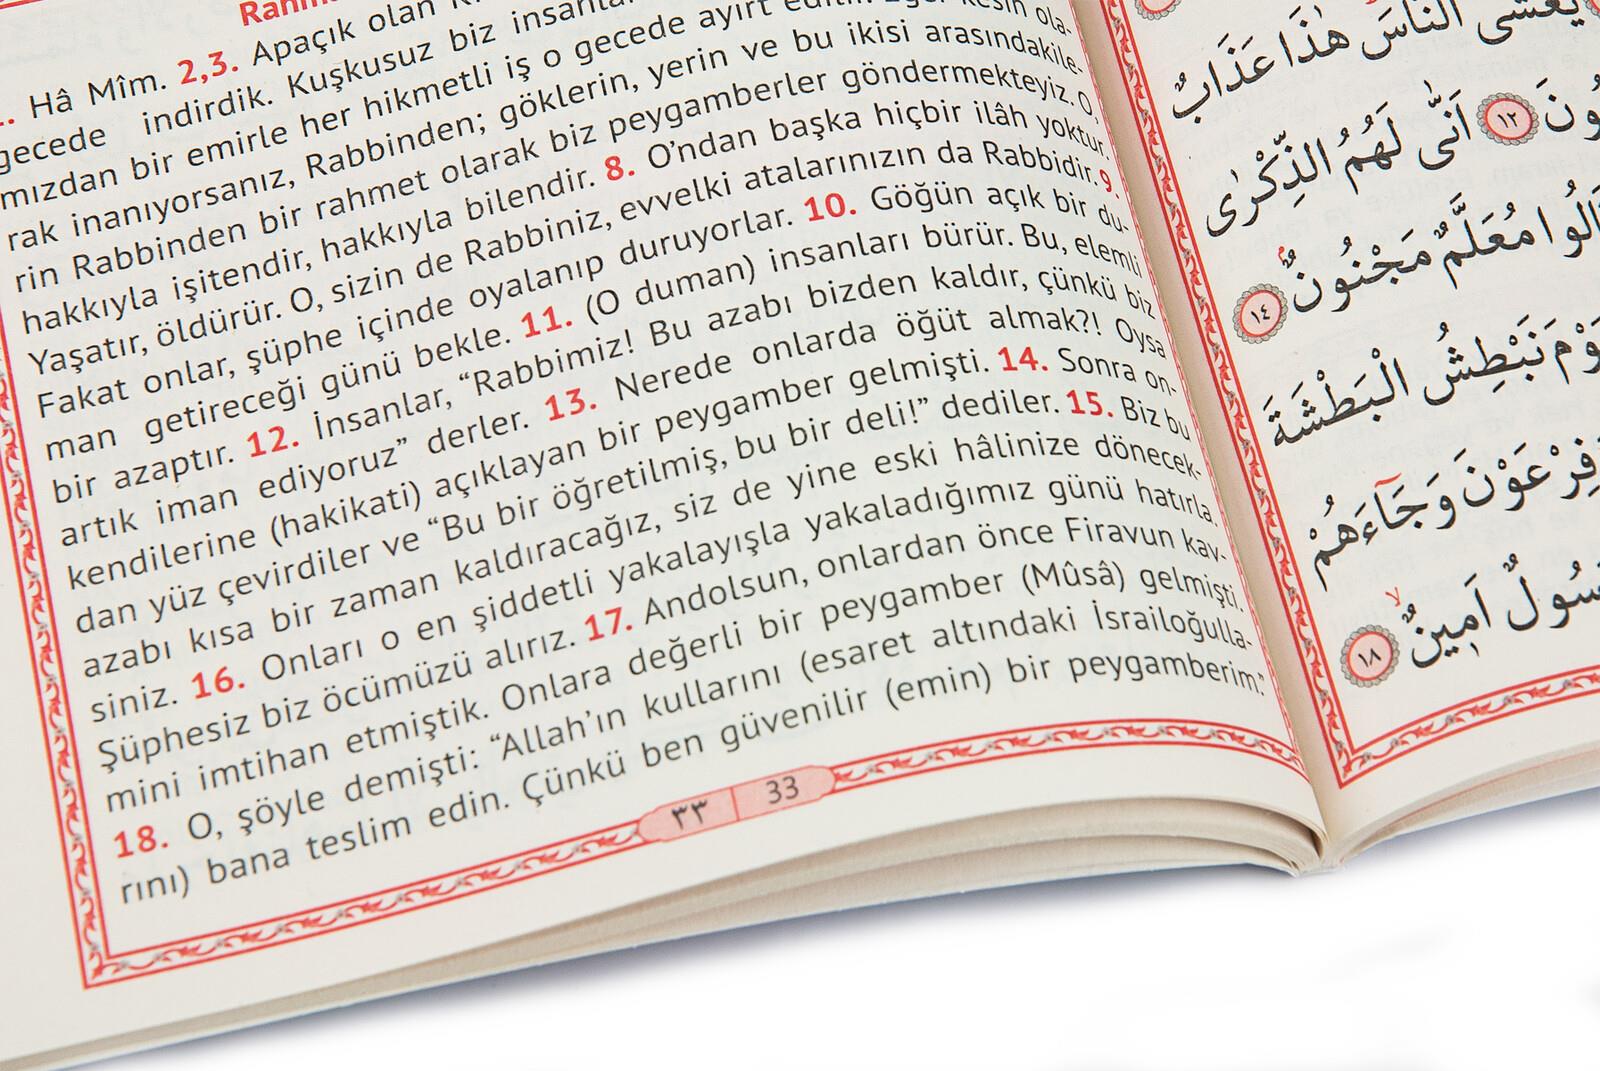 Hâ Mîm. 2,3. Apaçık olan
gecede indirdik. Kuşkusuz biz
mızdan bir emirle her hikmetli iş o gecede ayırt kesin ola-
rak inanıyorsanız, Rabbinden; göklerin, yerin ve bu ikisi arasındakile-
rin Rabbinden bir rahmet olarak biz peygamberler göndermekteyiz. O,
hakkıyla işitendir, hakkıyla bilendir. 8. O'ndan başka hiçbir ilâh yoktur.
Yaşatır, öldürür. O, sizin de Rabbiniz, evvelki atalarınızın da Rabbidir. 9.
Fakat onlar, şüphe içinde oyalanıp duruyorlar. 10. Göğün açık bir du-
man getireceği günü bekle. 11. (O duman) insanları bürür. Bu, elemli
bir azaptır. 12. İnsanlar, “Rabbimiz! Bu azabı bizden kaldır, çünkü biz
artık iman ediyoruz” derler. 13. Nerede onlarda öğüt almak?! Oysa
kendilerine (hakikati) açıklayan bir peygamber gelmişti. 14. Sonra on-
dan yüz çevirdiler ve “Bu bir öğretilmiş, bu bir deli!” dediler. 15. Biz bu
azabı kısa bir zaman kaldıracağız, siz de yine eski hâlinize dönecek-
siniz. 16. Onları o en şiddetli yakalayışla yakaladığımız günü hatırla.
Şüphesiz biz öcümüzü alırız. 17. Andolsun, onlardan önce Firavun kav-
mini imtihan etmiştik. Onlara değerli bir peygamber (Mûsâ) gelmişti.
18. O, şöyle demişti: “Allah'ın kullarını (esaret altındaki İsrailoğulla-
rını) bana teslim edin. Çünkü ben güvenilir (emin) bir peygamberim.”
٣٣ 33
يَغْشَى النَّاسَ هٰذَا عَذَابٌ
١٢ اَنّٰى لَهُمُ الذِّكْرٰى
مُعَلَّمٌ مَجْنُونٌ ١٤
نَبْطِشُ الْبَطْشَةَ
فِرْعَوْنَ وَجَٓاءَهُمْ
اَمٖينٌ ١٨